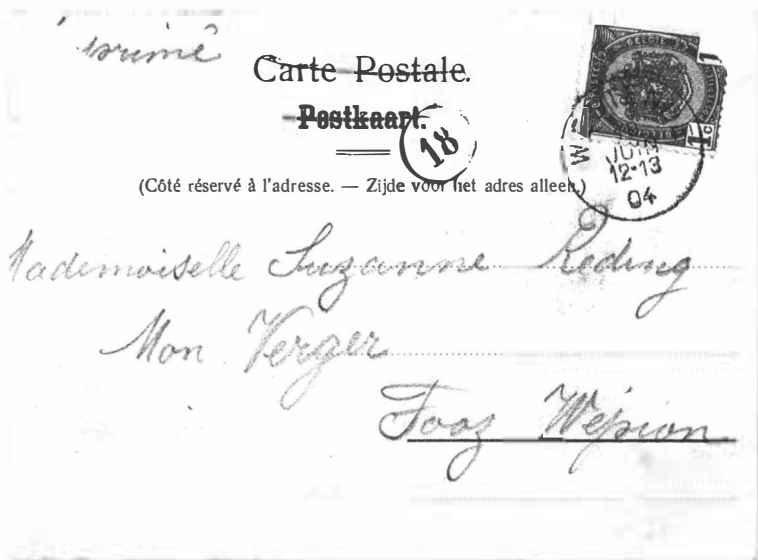 Imprimé
Carte Postale.
Postkaart.
18
(Côté réservé à l'adresse. — Zijde voor het adres alleen.)
JUIN
12-13
04
Mademoiselle Suzanne Reding
Mon Verger
Fooz Wépion